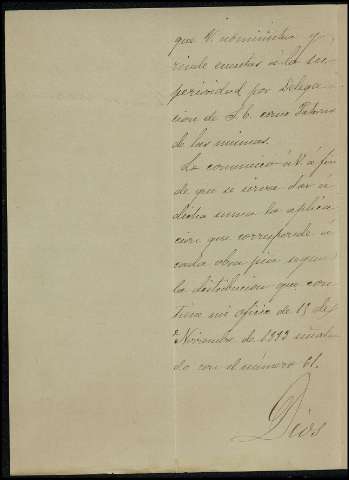 que V. administra y
rinde cuentas á la su-
perioridad por Delega-
cion de S. E. como Patrono
de las mismas.
Lo comunico á V. á fin
de que se sirva dar á
dicha suma la aplica-
cion que corresponde á
cada obra pia segun
la distribucion que con-
tiene mi oficio de 15 de
Noviembre de 1893 señala-
do con el número 61.
Dios